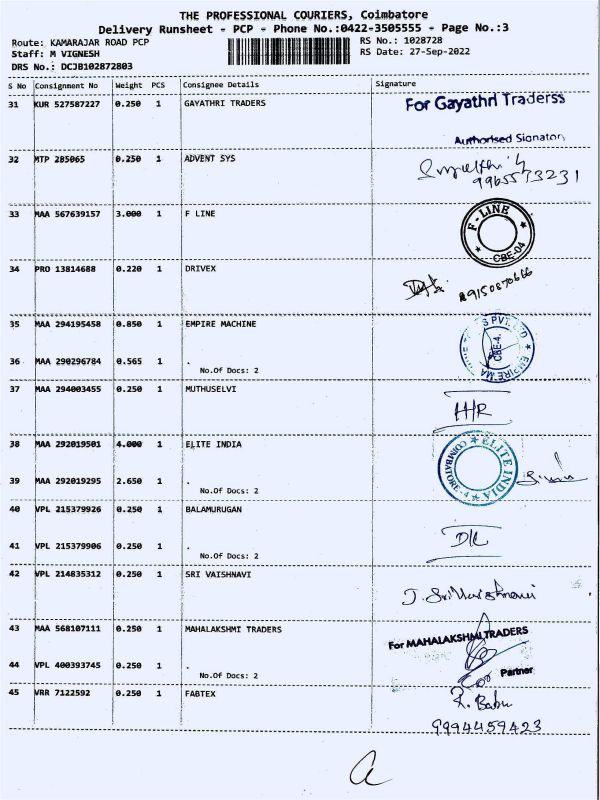 THE PROFESSIONAL COURIERS, Coimbatore
Delivery Runsheet - PCP - Phone No.:0422-3505555 - Page No.:3
Route: KAMARAJAR ROAD PCP RS No.: 1028728
Staff: M VIGNESH RS Date: 27-Sep-2022
DRS No.: DCJB102872803
S No Consignment No Weight PCS Consignee Details Signature
31 KUR 527587227 0.250 1 GAYATHRI TRADERS For Gayathri Traderss
Authorised Signatory
32 MTP 285065 0.250 1 ADVENT SYS
9965573231
33 MAA 567639157 3.000 1 F LINE F-LINE CBE-04
34 PRO 13814688 0.220 1 DRIVEX 9150870666
35 MAA 294195458 0.850 1 EMPIRE MACHINE S PVT. LTD CBE-4. EMPIRE MA
36 MAA 290296784 0.565 1 .
No.Of Docs: 2
37 MAA 294003455 0.250 1 MUTHUSELVI
H/R
38 MAA 292019501 4.000 1 ELITE INDIA ELITE INDIA COIMBATORE-4
39 MAA 292019295 2.650 1 .
No.Of Docs: 2
40 VPL 215379926 0.250 1 BALAMURUGAN
D/L
41 VPL 215379906 0.250 1 .
No.Of Docs: 2
42 VPL 214835312 0.250 1 SRI VAISHNAVI
J. Sri Vaishnavi
43 MAA 568107111 0.250 1 MAHALAKSHMI TRADERS For MAHALAKSHMI TRADERS
44 VPL 400393745 0.250 1 .
No.Of Docs: 2 Partner
45 VRR 7122592 0.250 1 FABTEX R. Babu
9994459423